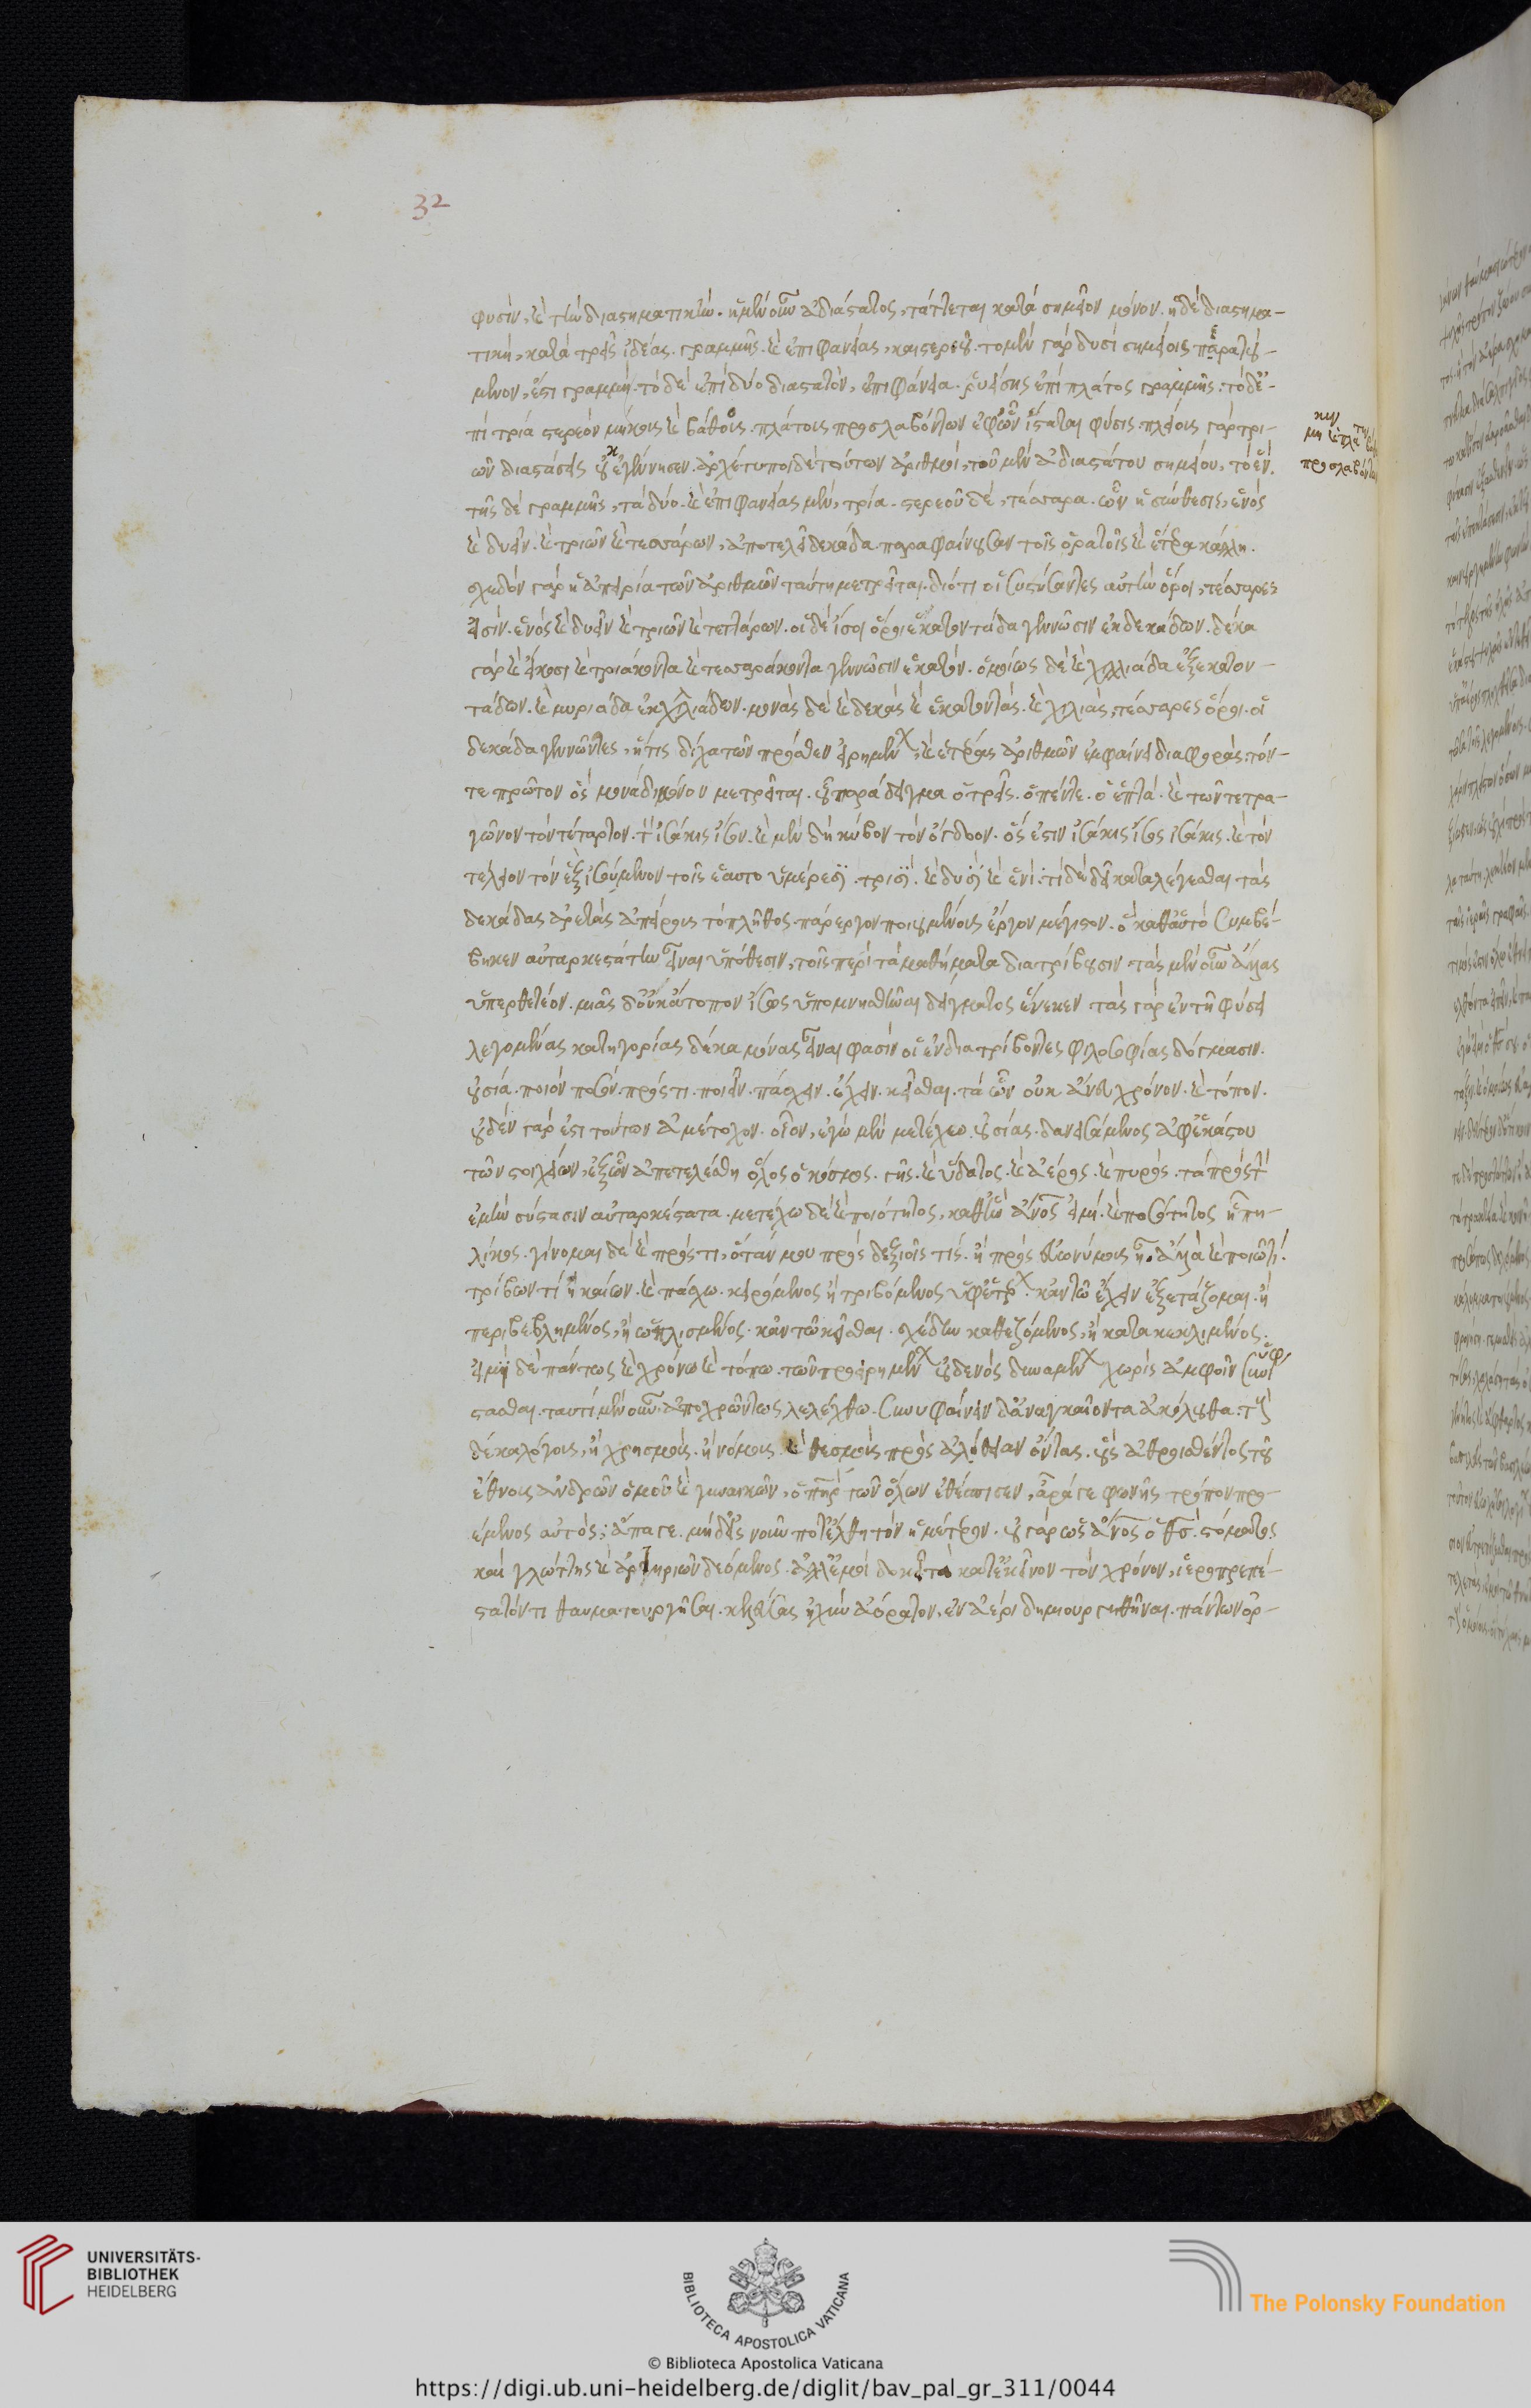 32
φυσιν, καὶ τὴν διαστηματικήν. ἡ μὲν οὖν ἀδιάστατος, τάττεται κατὰ σημεῖον μόνον. ἡ δὲ διαστημα-
τική, κατὰ τρεῖς ἰδέας. γραμμῆς. καὶ ἐπιφανείας, καὶ στερεοῦ. τὸ μὲν γὰρ δυσὶ σημείοις περατού-
μενον, ἐστι γραμμή. τὸ δὲ ἐπὶ δύο διαστατὸν, ἐπιφάνεια. ῥυείσης ἐπὶ πλάτος γραμμῆς: τὸ δὲ ἐ-
πὶ τρία στερεὸν μήκους καὶ βάθους. πλάτους προσλαβόντων ἐφ' ὧν ἵσταται φύσις. πλείους γὰρ τρι-
ῶν διαστάσεις οὐκ ἐγέννησεν. ἀρχέτυποι δὲ τούτων ἀριθμοὶ, τοῦ μὲν ἀδιαστάτου σημείου, τὸ ἕν.
τῆς δὲ γραμμῆς, τὰ δύο. καὶ ἐπιφανείας μὲν, τρία. στερεοῦ δὲ, τέσσαρα. ὧν ἡ σύνθεσις, ἑνὸς
καὶ δυεῖν. καὶ τριῶν καὶ τεσσάρων, ἀποτελεῖ δεκάδα παραφαίνουσαν τοῖς ὁρατοῖς καὶ ἕτερα κάλλη.
σχεδὸν γὰρ ἡ ἀπειρία τῶν ἀριθμῶν ταύτῃ μετρεῖται. διότι οἱ συστήσαντες αὐτὴν ὅροι, τέσσαρες
εἰσίν. ἑνὸς καὶ δυεῖν καὶ τριῶν καὶ τεττάρων. οἱ δὲ ἴσοι ὅροι ἑκατοντάδα γεννῶσιν ἐκ δεκάδων. δέκα
γὰρ καὶ εἴκοσι καὶ τριάκοντα καὶ τεσσαράκοντα γεννῶσιν ἑκατόν. ὁμοίως δὲ καὶ χιλιάδα ἐξ ἑκατον-
τάδων. καὶ μυριάδα ἐκ χιλιάδων. μονὰς δὲ καὶ δεκὰς καὶ ἑκατοντὰς. καὶ χιλιὰς, τέσσαρες ὅροι. οἱ
δεκάδα γεννῶντες, ἥτις δίχα τῶν πρόσθεν εἰρημένων, καὶ ἑτέρας ἀριθμῶν ἐμφαίνει διαφορὰς: τόν-
τε πρῶτον ὃς μονάδι μόνον μετρεῖται. οὗ παράδειγμα ὁ τρεῖς. ὁ πέντε. ὁ ἑπτά. καὶ τῶν τετρα-
γῶνον τὸν τέταρτον. τὸν ἰσάκις ἴσον. καὶ μὲν δὴ κύβον τὸν ὄγδοον. ὅς ἐστιν ἰσάκις ἴσος ἰσάκις. καὶ τὸν
τέλειον τὸν ἓξ ἰσούμενον τοῖς ἑαυτοῦ μέρεσι. τρισί. καὶ δυσὶ καὶ ἑνί: τί δὲ δεῖ καταλέγεσθαι τὰς
δεκάδας ἀρετὰς ἀπείρους τὸ πλῆθος. πάρεργον ποιουμένους ἔργον μέγιστον. ὃ καθ' αὑτὸ συμβέ-
βηκεν αὐταρκεστάτην εἶναι ὑπόθεσιν, τοῖς περὶ τὰ μαθήματα διατρίβουσιν. τὰς μὲν οὖν ἄλλας
ὑπερθετέον. μιᾶς δ' οὐκ ἄτοπον ἴσως ὑπομνησθῆναι δείγματος ἕνεκεν. τὰς γὰρ ἐν τῇ φύσει
λεγομένας κατηγορίας δέκα μόνας εἶναι φασιν οἱ ἐνδιατρίβοντες φιλοσοφίας δόγμασιν.
οὐσία. ποιόν. ποσόν. πρός τι. ποιεῖν. πάσχειν. ἔχειν. κεῖσθαι. τὰ ὧν οὐκ ἄνευ χρόνον. καὶ τόπον.
οὐδὲν γάρ ἐστι τούτων ἀμέτοχον. οἷον, ἐγὼ μὲν μετέχω οὐσίας. δανεισάμενος ἀφ' ἑκάστου
τῶν στοιχείων, ἐξ ὧν ἀπετελέσθη ὅλος ὁ κόσμος. γῆς. καὶ ὕδατος. καὶ ἀέρος. καὶ πυρός. τὰ πρὸς τὴν
ἐμὴν σύστασιν αὐταρκέστατα. μετέχω δὲ καὶ ποιότητος, καθ' ἣν ἄνος εἰμί. καὶ ποσότητος ἧ πη-
λίκος. γίνομαι δὲ καὶ πρός τι, ὅταν μου πρὸς δεξιοῖς τίς. ἢ πρὸς εὐωνύμοις ᾖ. ἀλλὰ καὶ ποιῶ τὶ.
τρίβων τὶ ἢ καίων. καὶ πάσχω. κειρόμενος ἢ τριβόμενος ὑφ' ἑτέρων. κἀν τῷ ἔχειν ἐξετάζομαι. ἢ
περιβεβλημένος, ἢ ὡπλισμένος. κἀν τῷ κεῖσθαι. σχέδην καθεζόμενος, ἢ κατακεκλιμένος.
εἰμὶ δὲ πάντως καὶ χρόνῳ καὶ τόπῳ. τῶν προειρημένων οὐδενὸς δυναμένων χωρὶς ἀμφοῖν συνυφί
στασθαι. ταυτὶ μὲν οὖν ἀποχρώντως λελέχθω. συνυφαίνειν δ' ἀναγκαῖον τὰ ἀκόλουθα: τοὺς
δέκα λόγους, ἢ χρησμοὺς. ἢ νόμους. καὶ θεσμοὺς πρὸς ἀλήθειαν ὄντας. οὓς ἀθροισθέντος τοῦ
ἔθνους ἀνδρῶν ὁμοῦ καὶ γυναικῶν, ὁ πηρ τῶν ὅλων ἐθέσπισεν, ἆρά γε φωνῆς τρόπον προ-
έμενος αὐτός; ἄπαγε. μὴ δ' εἰς νοῦν ποτ' ἔλθῃ τὸν ἡμέτερον. οὐ γὰρ ὡς ἄνος ὁ θς. στόματος
καὶ γλώττης καὶ ἀρτηριῶν δεόμενος. ἀλλ' ἐμοὶ δοκεῖ τὰ κατ' ἐκεῖνον τὸν χρόνον, ἱεροπρεπέ-
στατόν τι θαυματουργῆσαι. κελεύσας ἠχὴν ἀόρατον, ἐν ἀέρι δημιουργηθῆναι. πάντων ὀρ-
προσλαβόντων
UNIVERSITÄTS-
BIBLIOTHEK
HEIDELBERG
BIBLIOTECA APOSTOLICA VATICANA
The Polonsky Foundation
© Biblioteca Apostolica Vaticana
https://digi.ub.uni-heidelberg.de/diglit/bav_pal_gr_311/0044